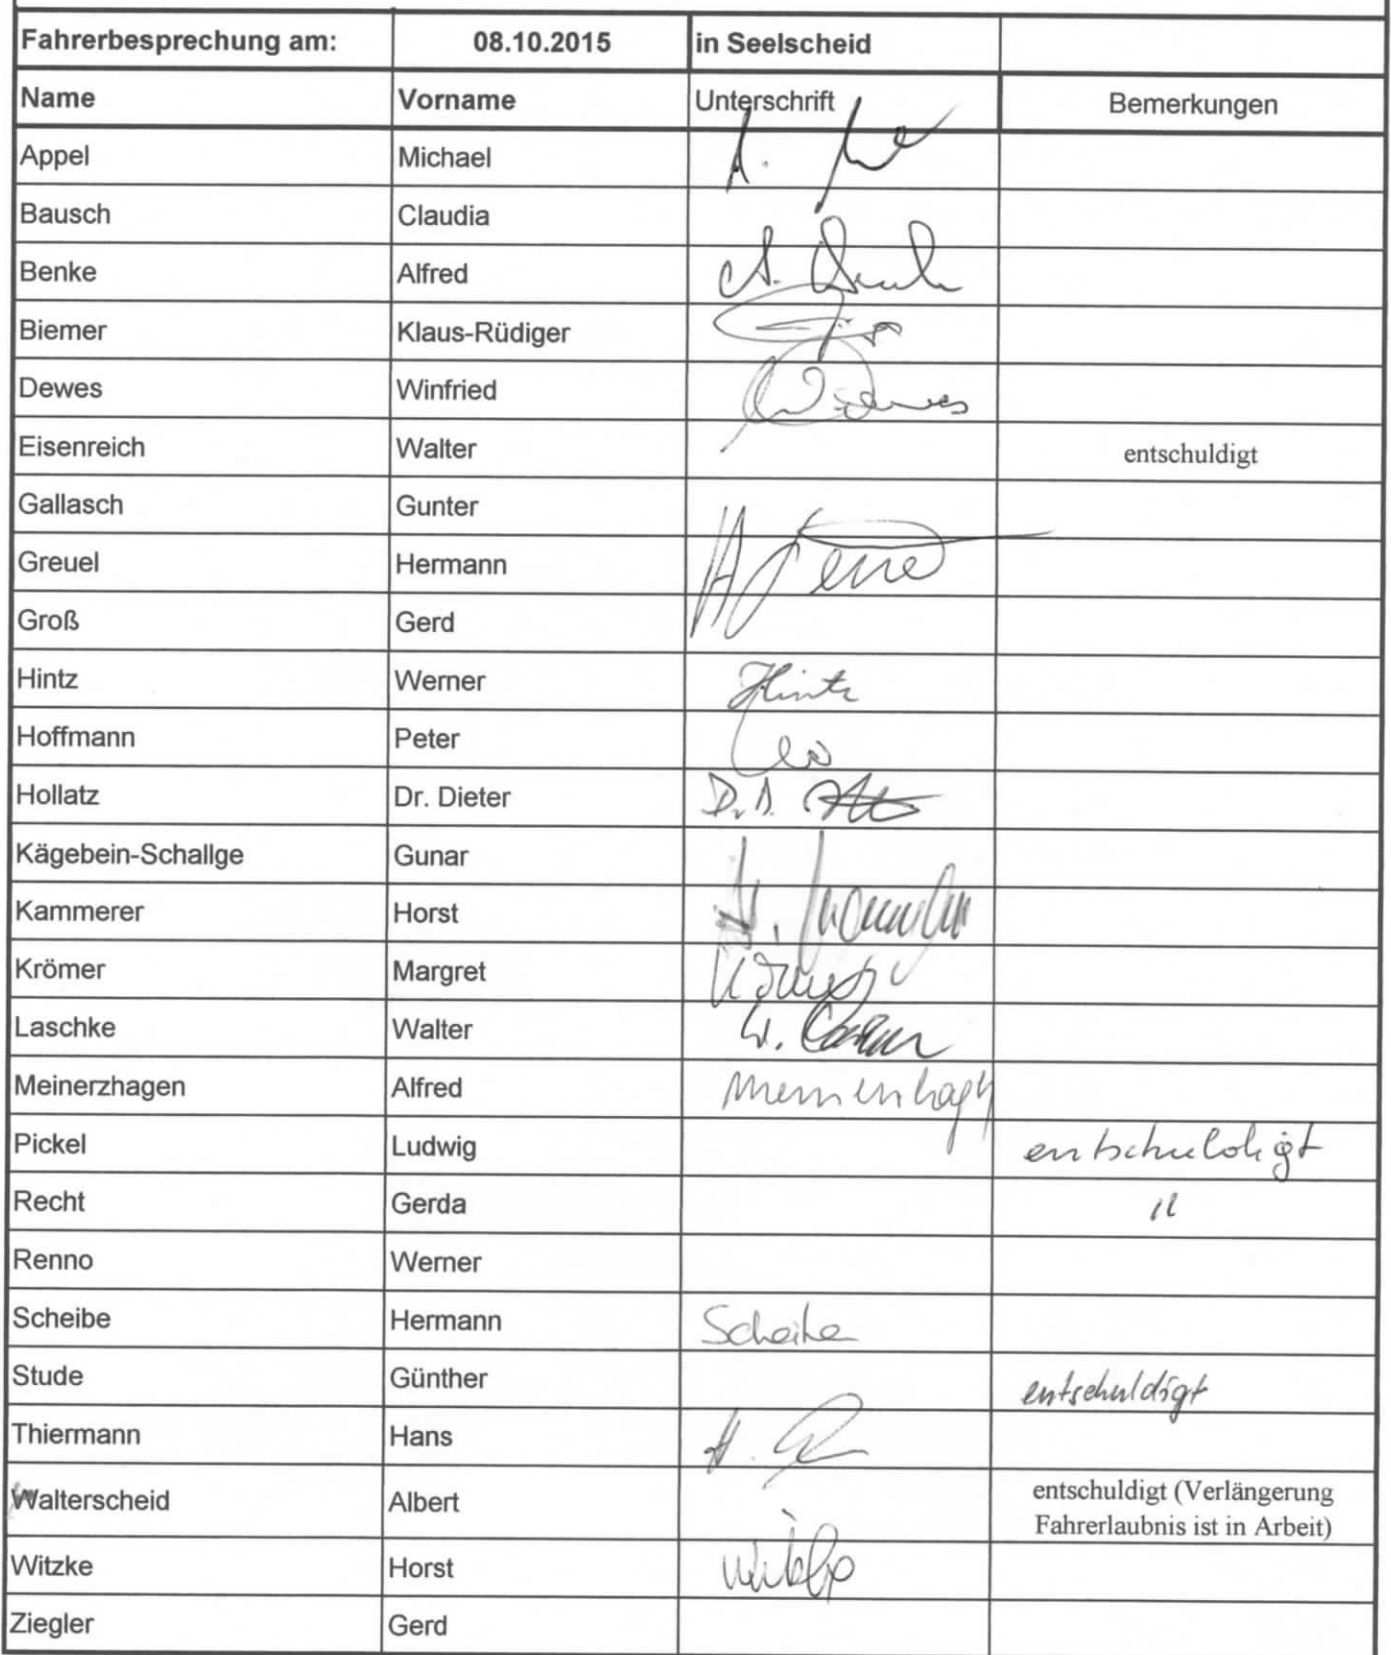 Fahrerbesprechung am: 08.10.2015 in Seelscheid
Name Vorname Unterschrift Bemerkungen
Appel Michael
Bausch Claudia
Benke Alfred
Biemer Klaus-Rüdiger
Dewes Winfried
Eisenreich Walter entschuldigt
Gallasch Gunter
Greuel Hermann
Groß Gerd
Hintz Werner Hintz
Hoffmann Peter
Hollatz Dr. Dieter
Kägebein-Schallge Gunar
Kammerer Horst
Krömer Margret
Laschke Walter
Meinerzhagen Alfred
Pickel Ludwig entschuldigt
Recht Gerda "
Renno Werner
Scheibe Hermann Scheibe
Stude Günther entschuldigt
Thiermann Hans
Walterscheid Albert entschuldigt (Verlängerung
Fahrerlaubnis ist in Arbeit)
Witzke Horst
Ziegler Gerd